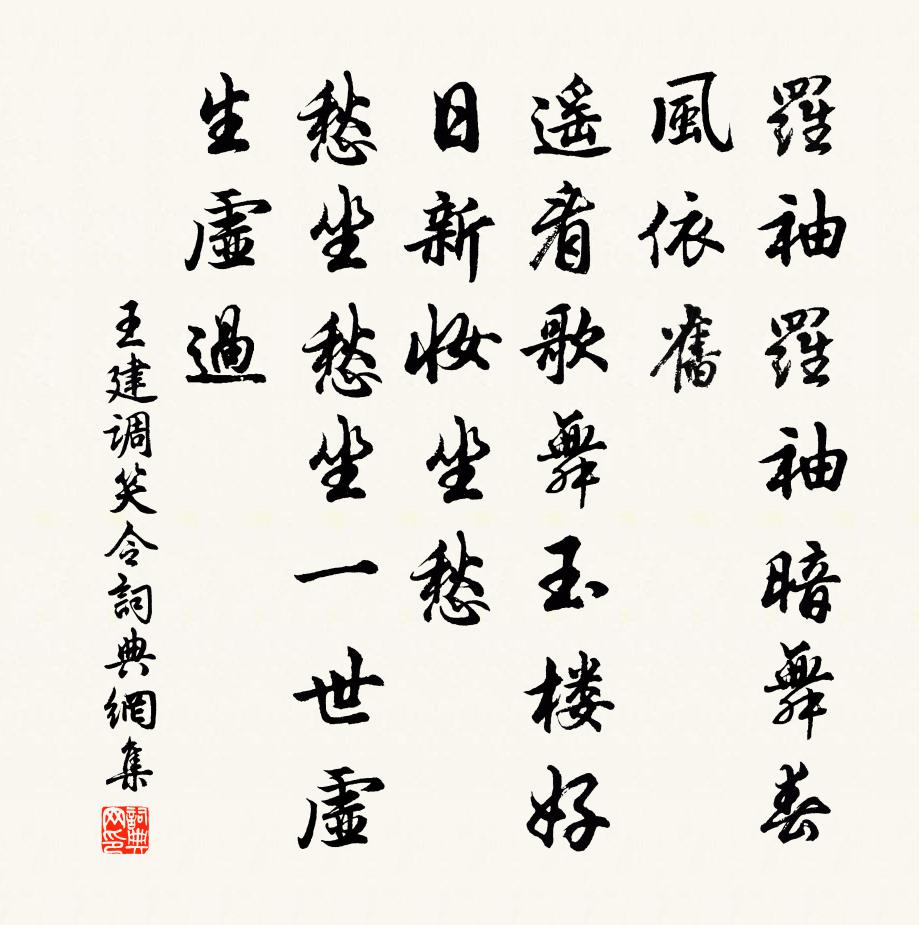 羅袖羅袖暗舞春
風依舊
遥看歌舞玉楼好
日新妝坐愁
愁坐愁坐一世虛
生虛過
王建调笑令詞典網集
詞典网印